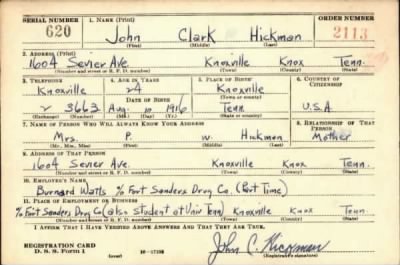 SERIAL NUMBER 1. NAME (Print) ORDER NUMBER
620 John Clark Hickman 2113
(First) (Middle) (Last)
2. ADDRESS (Print)
1604 Sevier Ave. Knoxville Knox Tenn.
(Number and street or R. F. D. number) (Town) (County) (State)
3. TELEPHONE 4. AGE IN YEARS 5. PLACE OF BIRTH 6. COUNTRY OF CITIZENSHIP
Knoxville 24 Knoxville
(Town or county)
DATE OF BIRTH
2 3663 Aug. 10 1916 Tenn U.S.A.
(Exchange) (Number) (Mo.) (Day) (Yr.) (State or country)
7. NAME OF PERSON WHO WILL ALWAYS KNOW YOUR ADDRESS 8. RELATIONSHIP OF THAT PERSON
Mrs. P. W. Hickman Mother
(Mr., Mrs., Miss) (First) (Middle) (Last)
9. ADDRESS OF THAT PERSON
1604 Sevier Ave. Knoxville Knox Tenn.
(Number and street or R. F. D. number) (Town) (County) (State)
10. EMPLOYER'S NAME
Burnard Watts % Fort Sanders Drug Co. (Part Time)
11. PLACE OF EMPLOYMENT OR BUSINESS
% Fort Sanders Drug Co (also student at Univ Tenn) Knoxville Knox Tenn
(Number and street or R. F. D. number) (Town) (County) (State)
I AFFIRM THAT I HAVE VERIFIED ABOVE ANSWERS AND THAT THEY ARE TRUE.
REGISTRATION CARD
D. S. S. Form 1 (over) John C. Hickman
(Registrant's signature)